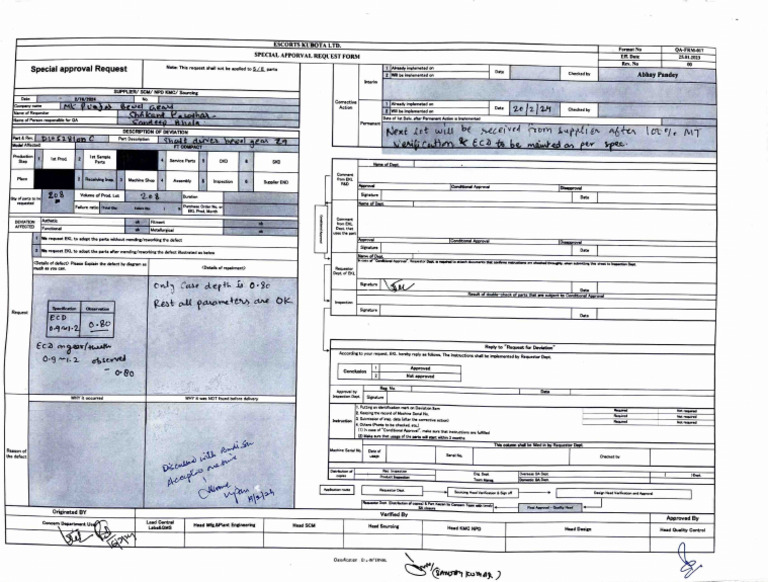 ESCORTS KUBOTA LTD.
SPECIAL APPORVAL REQUEST FORM
Format No QA-FRM-017
Eff. Date 25.01.2023
Rev. No 00
Special approval Request
Note: This request shall not be applied to S/E parts
SUPPLIER/ SCM/ NPD KMC/ Sourcing
Date
No.
Company name M/s Punjab Bevel Gears
Name of Requestor
Name of Person responsible for QA Sandeep
DESCRIPTION OF DEVIATION
Part & Rev.
Part Description Shaft driven bevel gear 29
Model Affected FT COMPACT
Production Step 1 1st Prod. 2 1st Sample Parts 4 Service Parts 5 CKD 6 DKD
Place 2 Receiving Insp. 3 Machine Shop 4 Assembly 5 Inspection 6 Supplier END
Qty of parts to be requested 208
Volume of Prod. Lot 208
Duration
Failure ratio
Purchase Order No. or EKL Prod. Month
DEVIATION AFFECTED
Asthetic ok Fitment ok
Functional ok Metallurgical ok
1 We request EKL to adopt the parts without mending/reworking the defect
2 We request EKL to adopt the parts after mending/reworking the defect illustrated as below
Request
(Details of defect) Please Explain the defect by diagram as much as you can.
(Details of repairment)
Specification Observation
ECD
0.9~1.2 0.80
0.9~1.2 observed
- 0.80
Only Case depth is 0.80
Rest all parameters are OK
WHY it occurred
WHY it was NOT found before delivery
Reason of the defect
Discussed with
Interim
1 Already implemented on
2 Will be implemented on
Date
Checked by
Abhay Pandey
Corrective Action
Permanent
1 Already implemented on
2 Will be implemented on
Date 20/2/24
Checked by
Date of 1st Lot, after Permanent Action is implemented
Next Lot will be received from supplier after 100% MT
verification & ECD to be maintained as per spec.
Name of Dept.
Comment from EKL R&D
Approval Conditional Approval Disapproval
Signature Date
Name of Dept.
Comment from EKL Dept. that uses the part
Approval Conditional Approval Disapproval
Signature Date
Name of Dept.
Requestor Dept. of EKL
In case of "Conditional Approval", Requestor Dept. is required to attach documents that confirms instructions are obtained throughly, when submitting this sheet to Inspection Dept.
Signature Date
Inspection
Result of double-check of parts that are subject to Conditional Approval
Signature Date
Reply to "Request for Deviation"
According to your request, EKL hereby reply as follows. The instructions shall be implemented by Requestor Dept.
Conclusion
1 Approved
2 Not approved
Approval by Inspection Dept.
Reg. No Date
Signature
Instruction
1. Putting an identification mark on Deviation Item Required Not required
2. Keeping the record of Machine Serial No. Required Not required
3. Submission of insp. data (after the corrective action) Required Not required
4. Others (Points to be checked, etc.) Required Not required
(1) In case of "Conditional Approval", make sure that instructions are fulfilled
(2) Make sure usage of the parts will start within 2 months
This column shall be filled in by Requestor Dept.
Machine Serial No. Date of usage Serial No. Checked by
Distribution of copies
Rec. Inspection
Product Inspection
Exp. Dept.
Overseas BA Dept.
Domestic BA Dept.
Application route
Requestor Dept.
Sourcing Head Verification & Sign off
Design Head Verification and Approval
Final Approval - Quality Head
Originated BY
Verified By
Approved By
Concern Department User
Lead Central Labs&QMS
Head Mfg.&Plant Engineering
Head SCM
Head Sourcing
Head KMC NPD
Head Design
Head Quality Control
(SANJAY KUMAR)